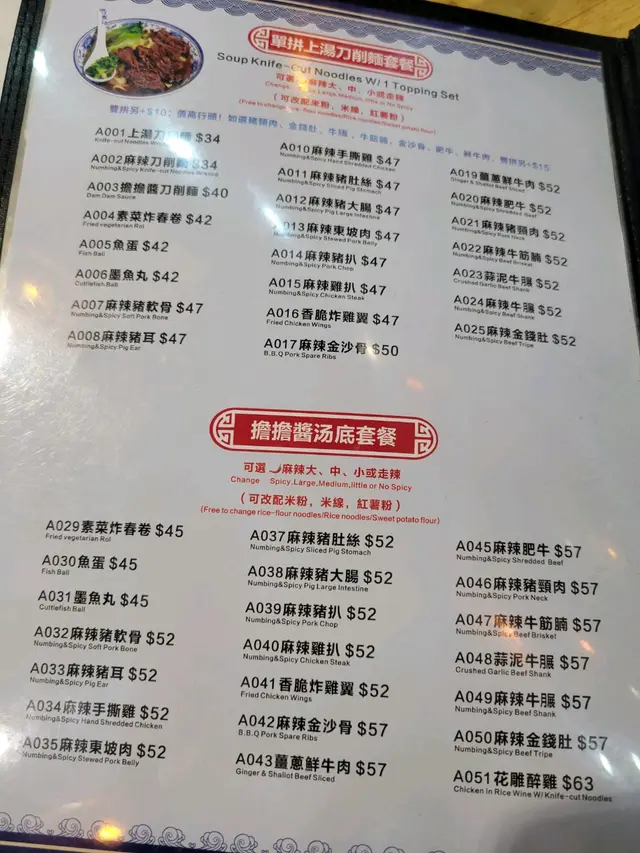 單拼上湯刀削麵套餐
Soup Knife-Cut Noodles W/ 1 Topping Set
可選 麻辣大、中、小或走辣
Change Large, Medium, little or No Spicy
(可改配米粉，米線，紅薯粉)
(Free to change rice-flour noodles/Rice noodles/Sweet potato flour)
雙拼另+$10；價高行頭！如選豬頸肉、金錢肚、牛𦟌、牛筋腩、金沙骨、肥牛、鮮牛肉，雙拼另+$15
A001上湯刀削麵 $34
Knife-cut Noodles
A002麻辣刀削麵 $34
A003擔擔醬刀削麵 $40
Dam Dam Sauce
A004素菜炸春卷 $42
Fried vegetarian Rol
A005魚蛋 $42
Fish Ball
A006墨魚丸 $42
Cuttlefish Ball
A007麻辣豬軟骨 $47
Numbing&Spicy Soft Pork Bone
A008麻辣豬耳 $47
Numbing&Spicy Pig Ear
A010麻辣手撕雞 $47
Numbing&Spicy Hand Shredded Chicken
A011麻辣豬肚絲 $47
Numbing&Spicy Sliced Pig Stomach
A012麻辣豬大腸 $47
Numbing&Spicy Pig Large Intestine
A013麻辣東坡肉 $47
Numbing&Spicy Stewed Pork Belly
A014麻辣豬扒 $47
Numbing&Spicy Pork Chop
A015麻辣雞扒 $47
Numbing&Spicy Chicken Steak
A016香脆炸雞翼 $47
Fried Chicken Wings
A017麻辣金沙骨 $50
B.B.Q Pork Spare Ribs
A019薑蔥鮮牛肉 $52
Ginger & Shallot Beef Sliced
A020麻辣肥牛 $52
Numbing&Spicy Shredded Beef
A021麻辣豬頸肉 $52
Numbing&Spicy Pork Neck
A022麻辣牛筋腩 $52
Numbing&Spicy Beef Brisket
A023蒜泥牛𦟌 $52
Crushed Garlic Beef Shank
A024麻辣牛𦟌 $52
Numbing&Spicy Beef Shank
A025麻辣金錢肚 $52
Numbing&Spicy Beef Tripe
擔擔醬汤底套餐
可選 麻辣大、中、小或走辣
Change Spicy,Large,Medium,little or No Spicy
(可改配米粉，米線，紅薯粉)
(Free to change rice-flour noodles/Rice noodles/Sweet potato flour)
A029素菜炸春卷 $45
Fried vegetarian Rol
A030魚蛋 $45
Fish Ball
A031墨魚丸 $45
Cuttlefish Ball
A032麻辣豬軟骨 $52
Numbing&Spicy Soft Pork Bone
A033麻辣豬耳 $52
Numbing&Spicy Pig Ear
A034麻辣手撕雞 $52
Numbing&Spicy Hand Shredded Chicken
A035麻辣東坡肉 $52
Numbing&Spicy Stewed Pork Belly
A037麻辣豬肚絲 $52
Numbing&Spicy Sliced Pig Stomach
A038麻辣豬大腸 $52
Numbing&Spicy Pig Large Intestine
A039麻辣豬扒 $52
Numbing&Spicy Pork Chop
A040麻辣雞扒 $52
Numbing&Spicy Chicken Steak
A041香脆炸雞翼 $52
Fried Chicken Wings
A042麻辣金沙骨 $57
B.B.Q Pork Spare Ribs
A043薑蔥鮮牛肉 $57
Ginger & Shallot Beef Sliced
A045麻辣肥牛 $57
Numbing&Spicy Shredded Beef
A046麻辣豬頸肉 $57
Numbing&Spicy Pork Neck
A047麻辣牛筋腩 $57
Numbing&Spicy Beef Brisket
A048蒜泥牛𦟌 $57
Crushed Garlic Beef Shank
A049麻辣牛𦟌 $57
Numbing&Spicy Beef Shank
A050麻辣金錢肚 $57
Numbing&Spicy Beef Tripe
A051花雕醉雞 $63
Chicken in Rice Wine W/ Knife-cut Noodles